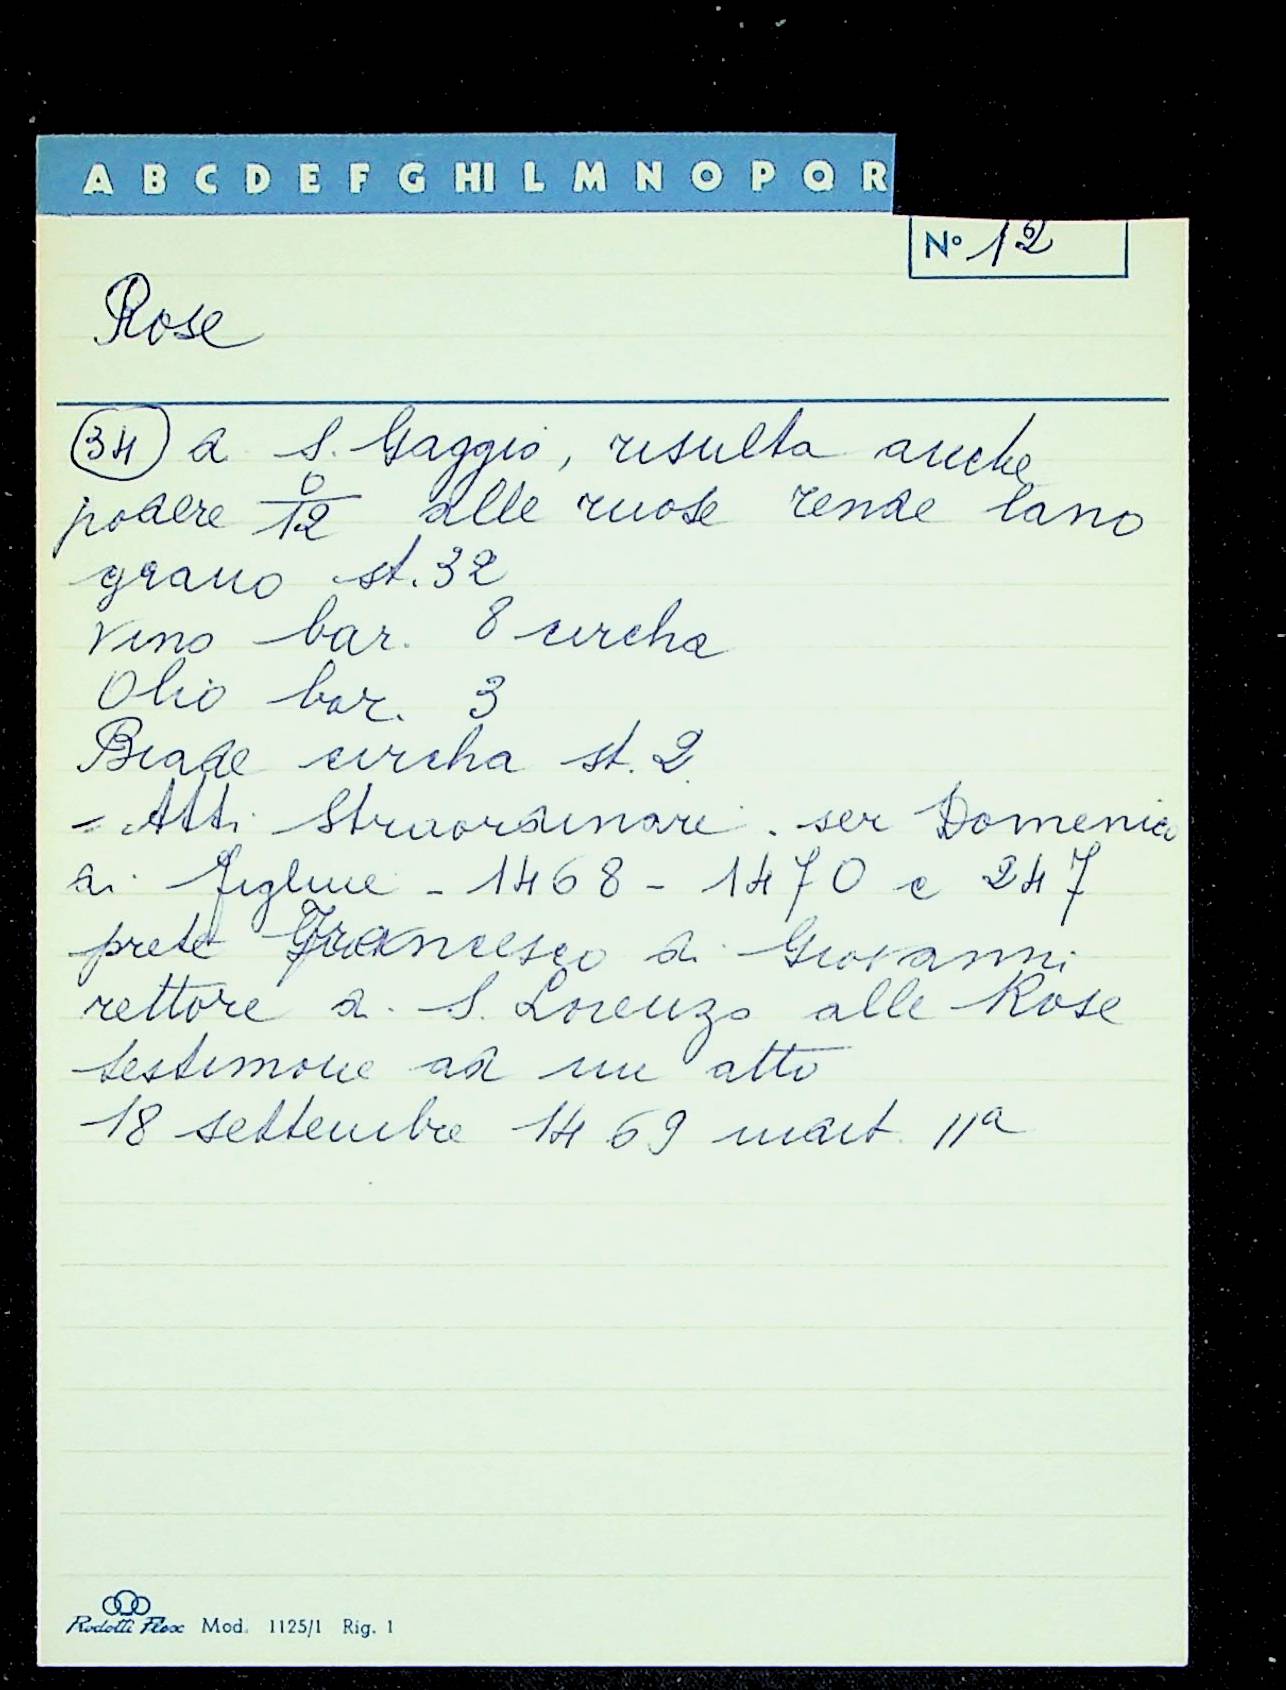 A B C D E F G HI L M N O P Q R
N° 12
Rose
34 a S. Gaggio, risulta anche
podere 0/12 alle ruose rende lano
grano st. 32
vino bar. 8 circha
Olio bar. 3
Biade circha st. 2
- Atti Straordinari. ser Domenico
di Figline - 1468 - 1470 c 247
prete Francesco di Giovanni
rettore di S. Lorenzo alle Rose
testimone ad un atto
18 settembre 1469 mart. 11a
Rodotti Flex Mod. 1125/1 Rig. 1